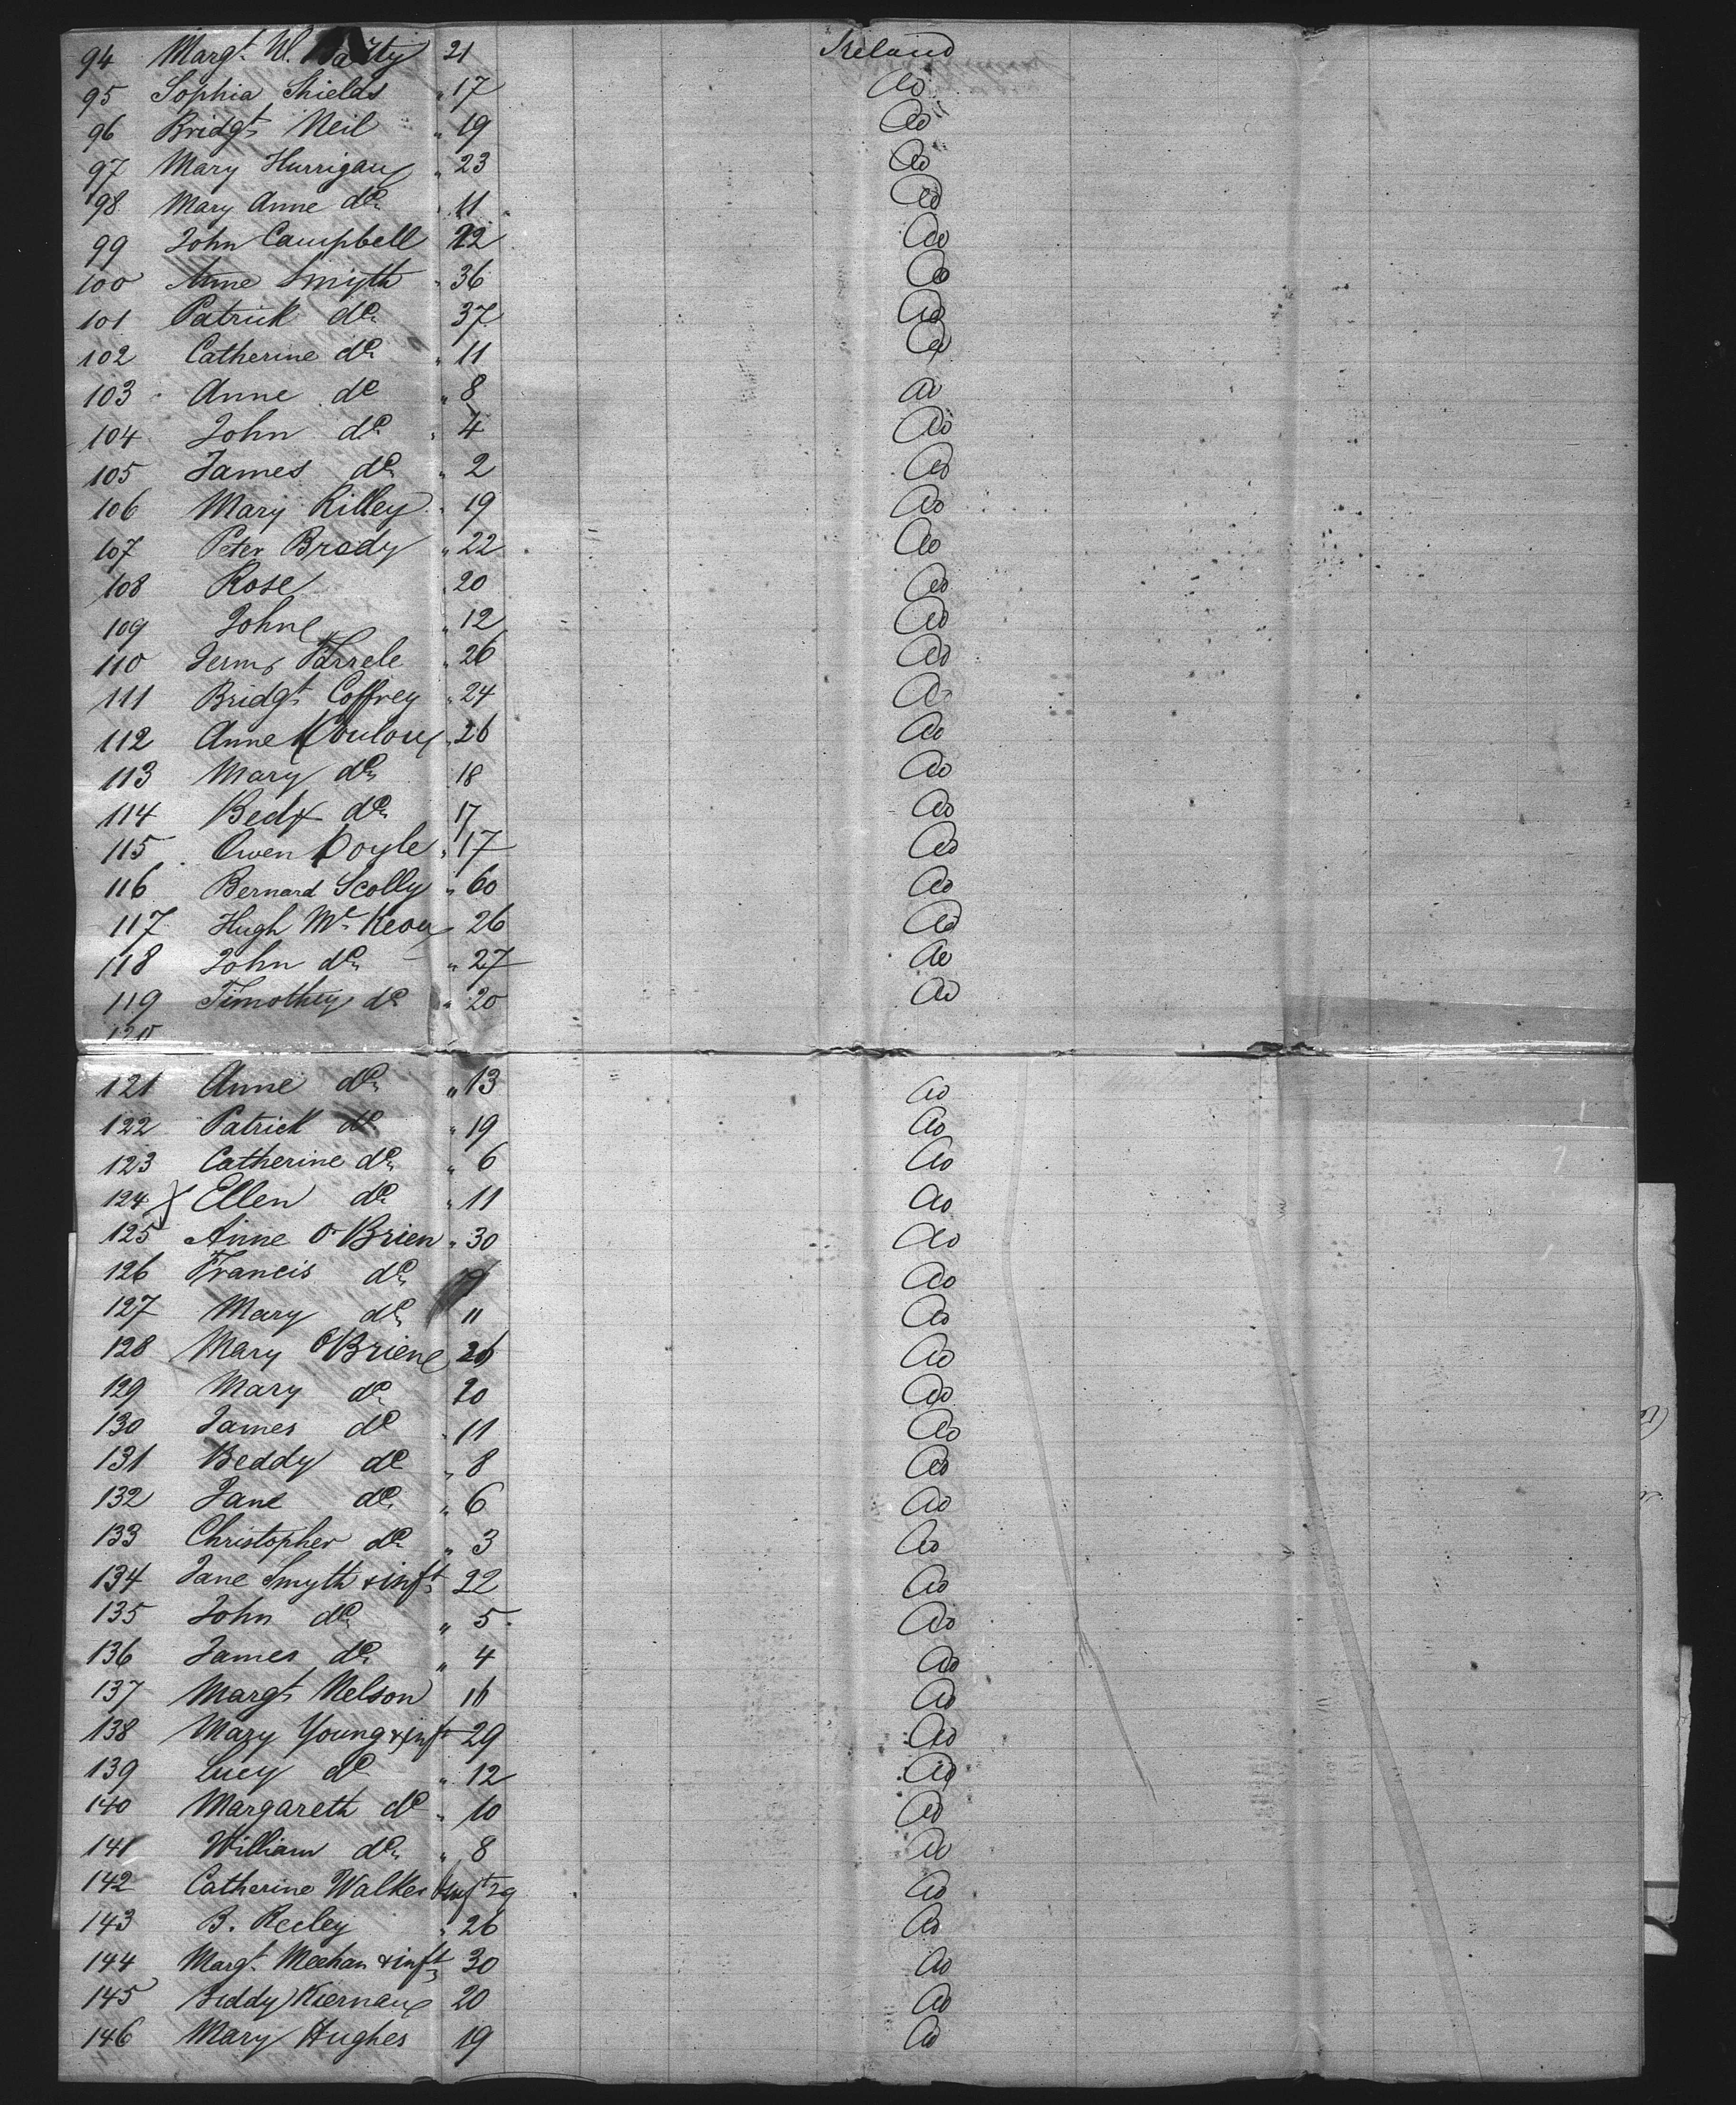 94 Margt. 21 Ireland
95 Sophia Shields " 17 do
96 Bridgt. Neil " 19 do
97 Mary Hurrigan " 23 do
98 Mary Anne do. " 11 do
99 John Campbell 22 do
100 Anne Smyth " 36 do
101 Patrick do. 37 do
102 Catherine do. " 11 do
103 Anne do " 8 do
104 John do. " 4 do
105 James do. " 2 do
106 Mary Rilley " 19 do
107 Peter Brady " 22 do
108 Rose 20 do
109 John " 12 do
110 Farrele " 26 do
111 Bridgt. Coffrey " 24 do
112 Anne Conlon " 26 do
113 Mary do. 18 do
114 do. 17 do
115 Owen Doyle " 17 do
116 Bernard Scolly " 60 do
117 Hugh Mc. Keon 26 do
118 John do. " 27 do
119 Timothy do " 20 do
120
121 Anne do. " 13 do
122 Patrick do. " 19 do
123 Catherine do. " 6 do
124 Ellen do. " 11 do
125 Anne O'Brien " 30 do
126 Francis do. do
127 Mary do. 11 do
128 Mary O'Brien do
129 Mary do. 20 do
130 James do 11 do
131 Beddy do " 8 do
132 Jane do. " 6 do
133 Christopher do. " 3 do
134 Jane Smyth & inft. 22 do
135 John do. " 5 do
136 James do. " 4 do
137 Margt. Nelson 16 do
138 Mary Young & inft 29 do
139 Lucy do " 12 do
140 Margareth do " 10 do
141 William do. " 8 do
142 Catherine Walker & inft 29 do
143 B. Reeley " 26 do
144 Margt. Meehan & inft. 30 do
145 Biddy Kiernan 20 do
146 Mary Hughes 19 do